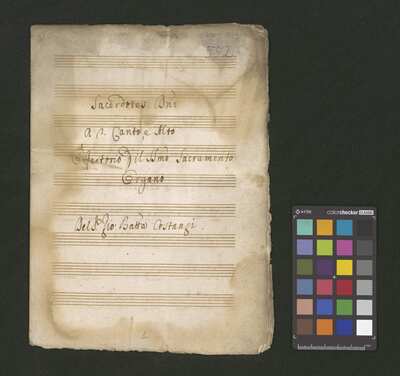 Sacerdotes Dni
A 2. Canto, e Alto
Offertorio Del SSmo Sacramento
Organo
Del Sr. Gio: Batta Costanzi
colorchecker CLASSIC
x-rite